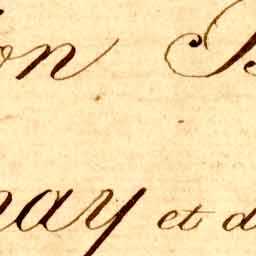 on B
nay et d